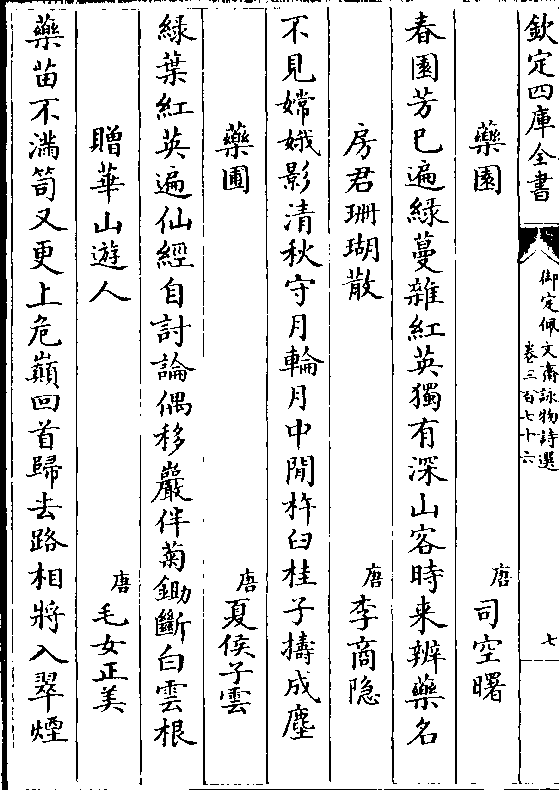 欽定四庫全書
御定佩文齋詠物詩選
卷三百七十六
七
藥園
唐 司空曙
春園芳已遍綠蔓雜紅英獨有深山客時来辨藥名
房君珊瑚散
唐 李商隐
不見嫦娥影清秋守月輪月中閒杵臼桂子擣成塵
藥圃
唐 夏侯子雲
綠葉紅英遍仙經自討論偶移巖伴菊鋤斷白雲根
贈華山遊人
唐 毛女正美
藥苗不滿笥又更上危巔回首歸去路相將入翠煙